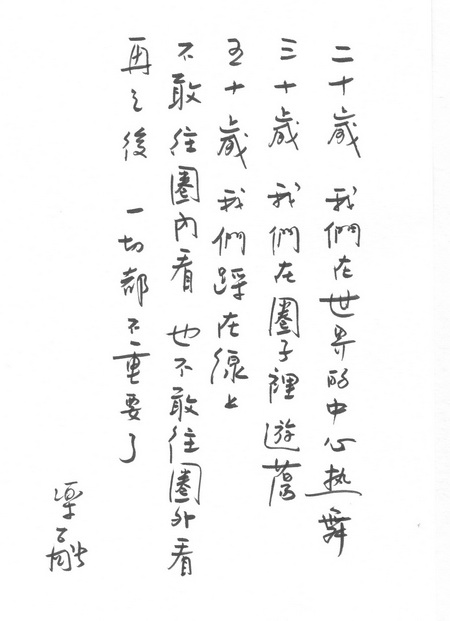 二十歲 我們在世界的中心热舞
三十歲 我們在圈子裡遊蕩
五十歲 我們踩在線上
不敢往圈內看 也不敢往圈外看
再之後 一切都不重要了